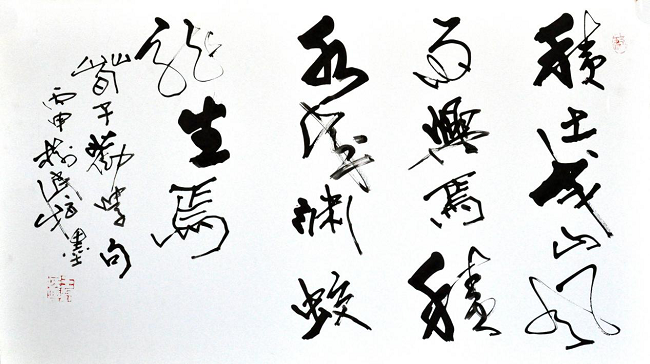 積土成山風
雨興焉積
水成淵蛟
龍生焉
荀子勸學句
丙申